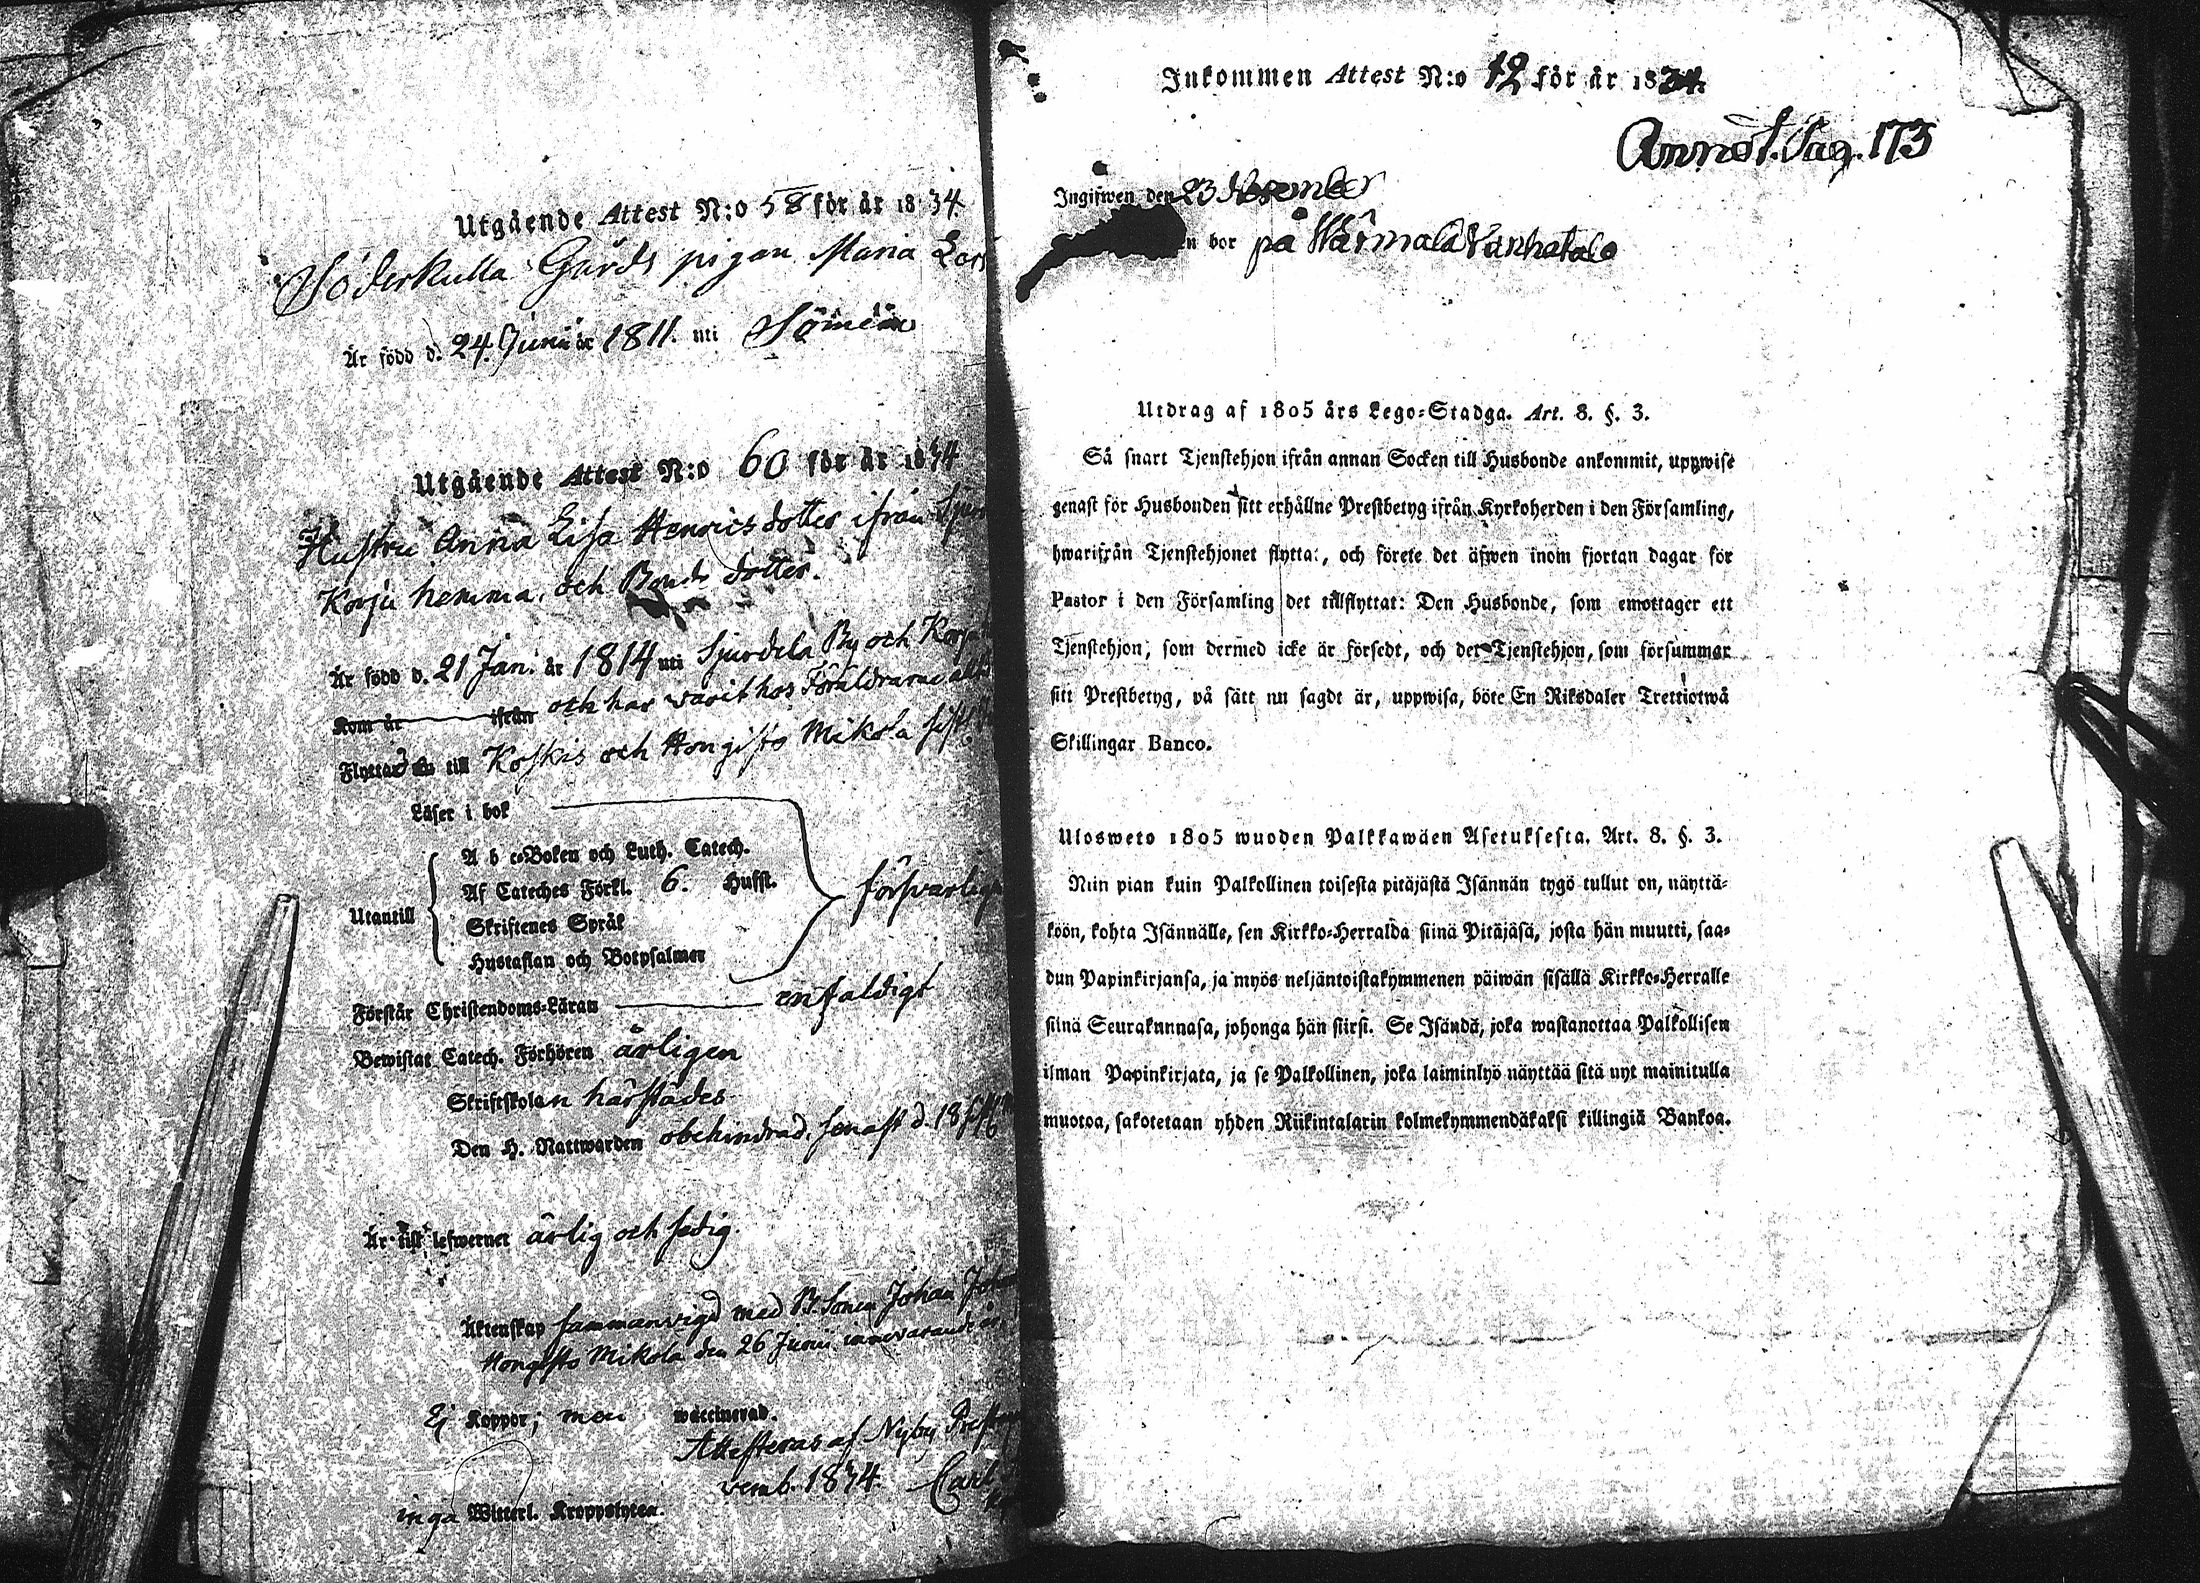 Utgående Attest N:o 58 för år 1834.
Söderkulla Gårds pigan Maria
Är född d. 24. Junii år 1811. uti
Utgående Attest N:o 60 för år 1834
Hustru Anna Lisa Henricsdotter ifrån
Korju hemma, och Bonde dotter.
Är född d. 21 Jan. år 1814 uti Sjurdela By och
Kom år ifrån och har varit hos Föräldrarne
Flyttad till Koskis och Hongisto Mikola
Läser i bok
A b c-Boken och Luth. Catech.
Af Cateches Förkl. 6. Hufst.
Utantill
Skriftenes Språk
Hustaflan och Botpsalmer
Förstår Christendoms-Läran enfaldigt
Bewistat Catech. Förhören årligen
Skriftskolan härstädes
Den H. Nattwarden obehindrad, senast d. 18
Är till lefwernet ärlig och sedig.
Äktenskap sammanvigd med B. Sonen Johan
Hongisto Mikola den 26 Junii innevarande år
Ej Koppor; men waccinerad.
Attesteras af Nyby
vemb. 1834. Carl
inga Witterl. Kroppslyten.
Inkommen Attest N:o 12 för år 1834.
Annot. Pag. 173
Ingifwen den 23 November
bor på Wärmälä Vanhatalo
Utdrag af 1805 års Lego-Stadga. Art. 8. §. 3.
Så snart Tjenstehjon ifrån annan Socken till Husbonde ankommit, uppwise
genast för Husbonden sitt erhållne Prestbetyg ifrån Kyrkoherden i den Församling,
hwarifrån Tjenstehjonet flyttat, och förete det äfwen inom fjortan dagar för
Pastor i den Församling det tillflyttat: Den Husbonde, som emottager ett
Tjenstehjon, som dermed icke är försedt, och det Tjenstehjon, som försummar
sitt Prestbetyg, på sätt nu sagdt är, uppwisa, böte En Riksdaler Trettiotwå
Skillingar Banco.
Ulosweto 1805 wuoden Palkkawäen Asetuksesta. Art. 8. §. 3.
Niin pian kuin Palkollinen toisesta pitäjästä Isännän tygö tullut on, näyttä-
köön, kohta Isännälle, sen Kirkko-Herralda siinä Pitäjäsä, josta hän muutti, saa-
dun Papinkirjansa, ja myös neljäntoistakymmenen päiwän sisällä Kirkko-Herralle
siinä Seurakunnasa, johonga hän siirsi. Se Isändä, joka wastanottaa Palkollisen
ilman Papinkirjata, ja se Palkollinen, joka laiminlyö näyttää sitä nyt mainitulla
muotoa, sakotetaan yhden Riikintalarin kolmekymmendäkaksi killingiä Bankoa.